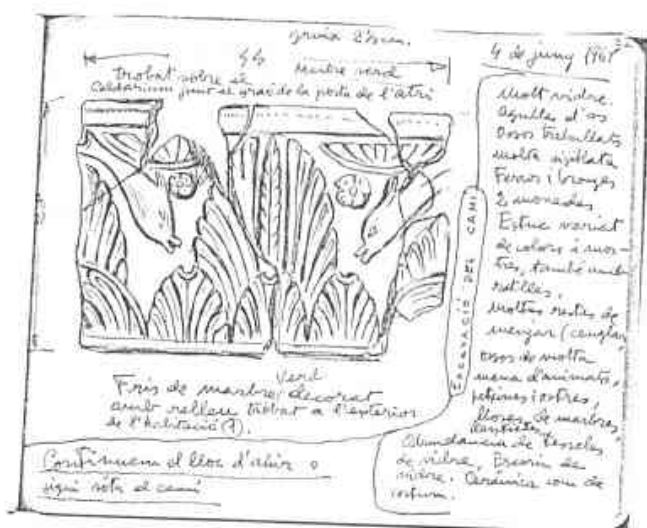 gruix
4 de juny
44
Marbre verd
trobat sobre el
Caldarium junt al graó de la porta de l'atri
Fris de marbre verd decorat
amb relleu trobat a l'exterior
de l'habitació (7).
Continuem el lloc d'ahir o
sigui sota el camí
EXCAVACIÓ DEL CAMÍ
Molt vidre.
Agulles d'os
Ossos treballats
molta sigillata
Ferros i bronzes
2 monedes
Estuc variat
de colors i mos-
tres, també amb
ratlles.
Moltes restes de
menjar (
ossos de molta
mena d'animals,
petxines i ostres,
lloses de marbres
Abundancia de teseles
de vidre,
vidre. Ceràmica com de
costum.